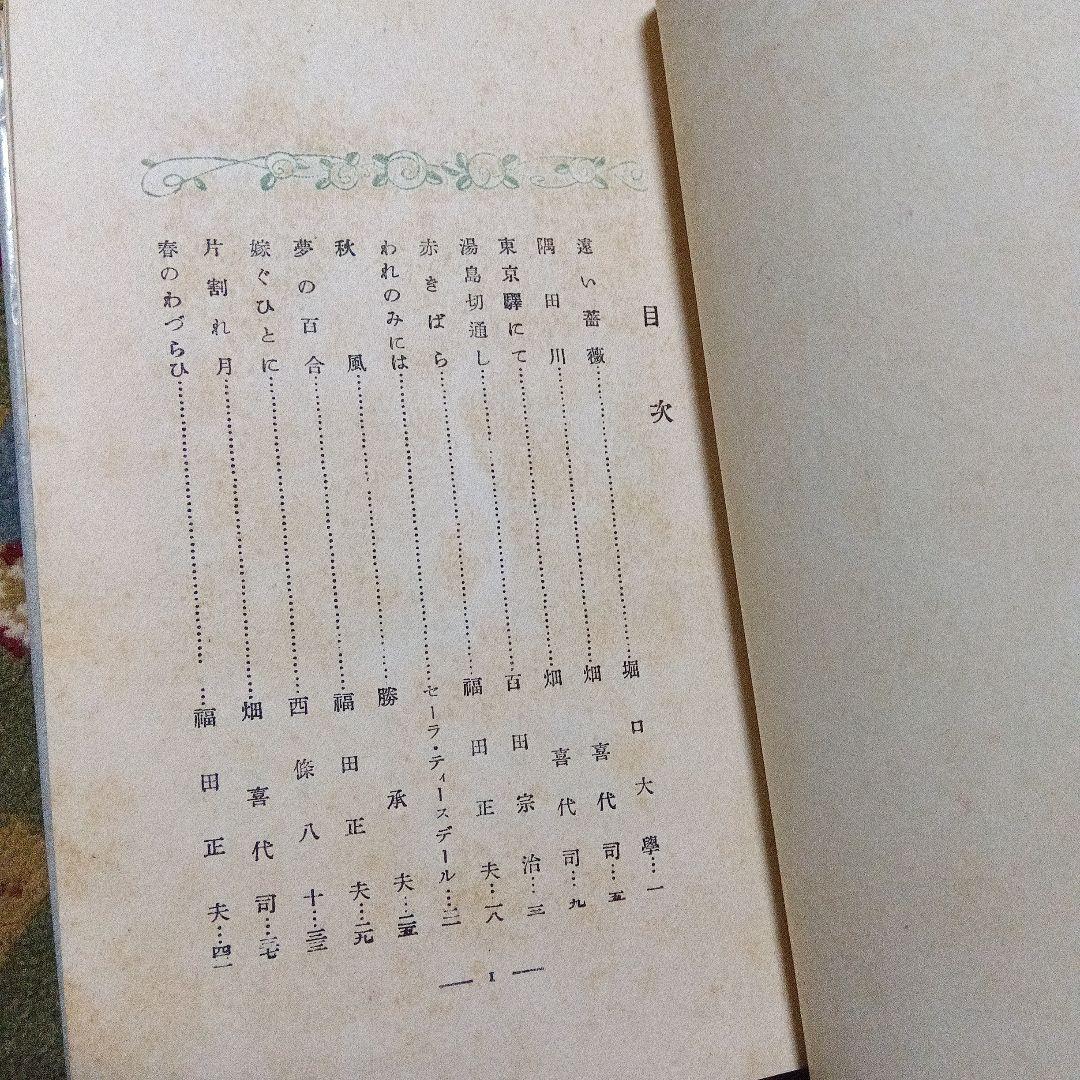 目次
遠い薔薇……堀口大學…一
隅田川……畑喜代司…五
東京驛にて……畑喜代司…九
湯島切通し……百田宗治…一三
赤きばら……福田正夫…一八
われのみには……セーラ・ティースデール…二一
秋風……勝承夫…二五
夢の百合……福田正夫…二九
嫁ぐひとに……西條八十…三三
片割れ月……畑喜代司…三七
春のわづらひ……福田正夫…四一
— 1 —